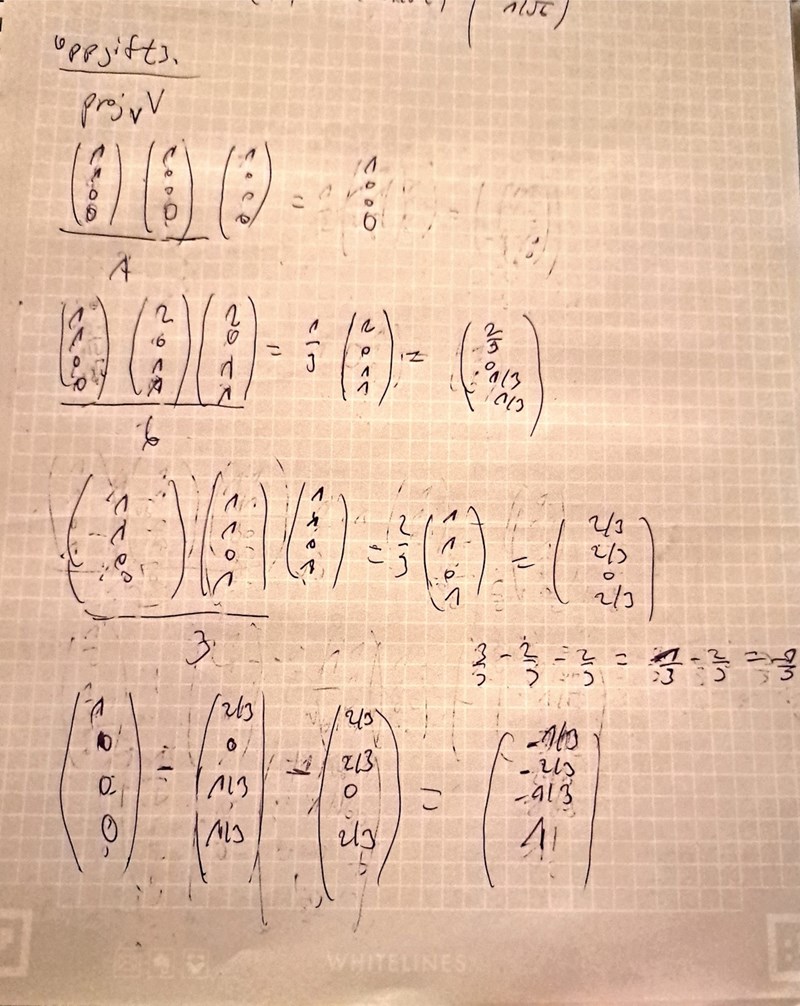 1/√6
Uppgift 3.
proj_v V
(1 1 0 0) (1 0 0 0) (1 0 0 0) = 1 0 0 0
1
(1 1 0 0) (2 0 1 1) (2 0 1 1) = 1/3 (2 0 1 1) = (2/3 0 1/3 1/3)
6
(1 1 0 0) (1 1 0 1) (1 1 0 1) = 2/3 (1 1 0 1) = (2/3 2/3 0 2/3)
3
3/3 - 2/3 - 2/3 = 1/3 - 2/3 = -1/3
(1 0 0 0) - (2/3 0 1/3 1/3) - (2/3 2/3 0 2/3) = (-1/3 -2/3 -1/3 1)
WHITELINES